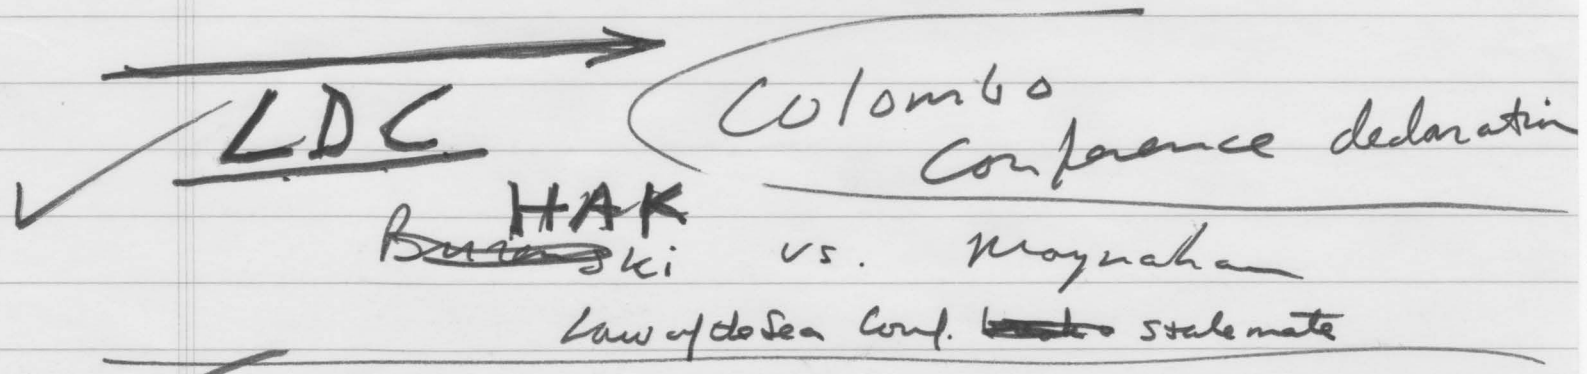 LDC
Colombo
Conference declaration
HAK
vs. Moynahan
Law of de Sea Conf. stalemate